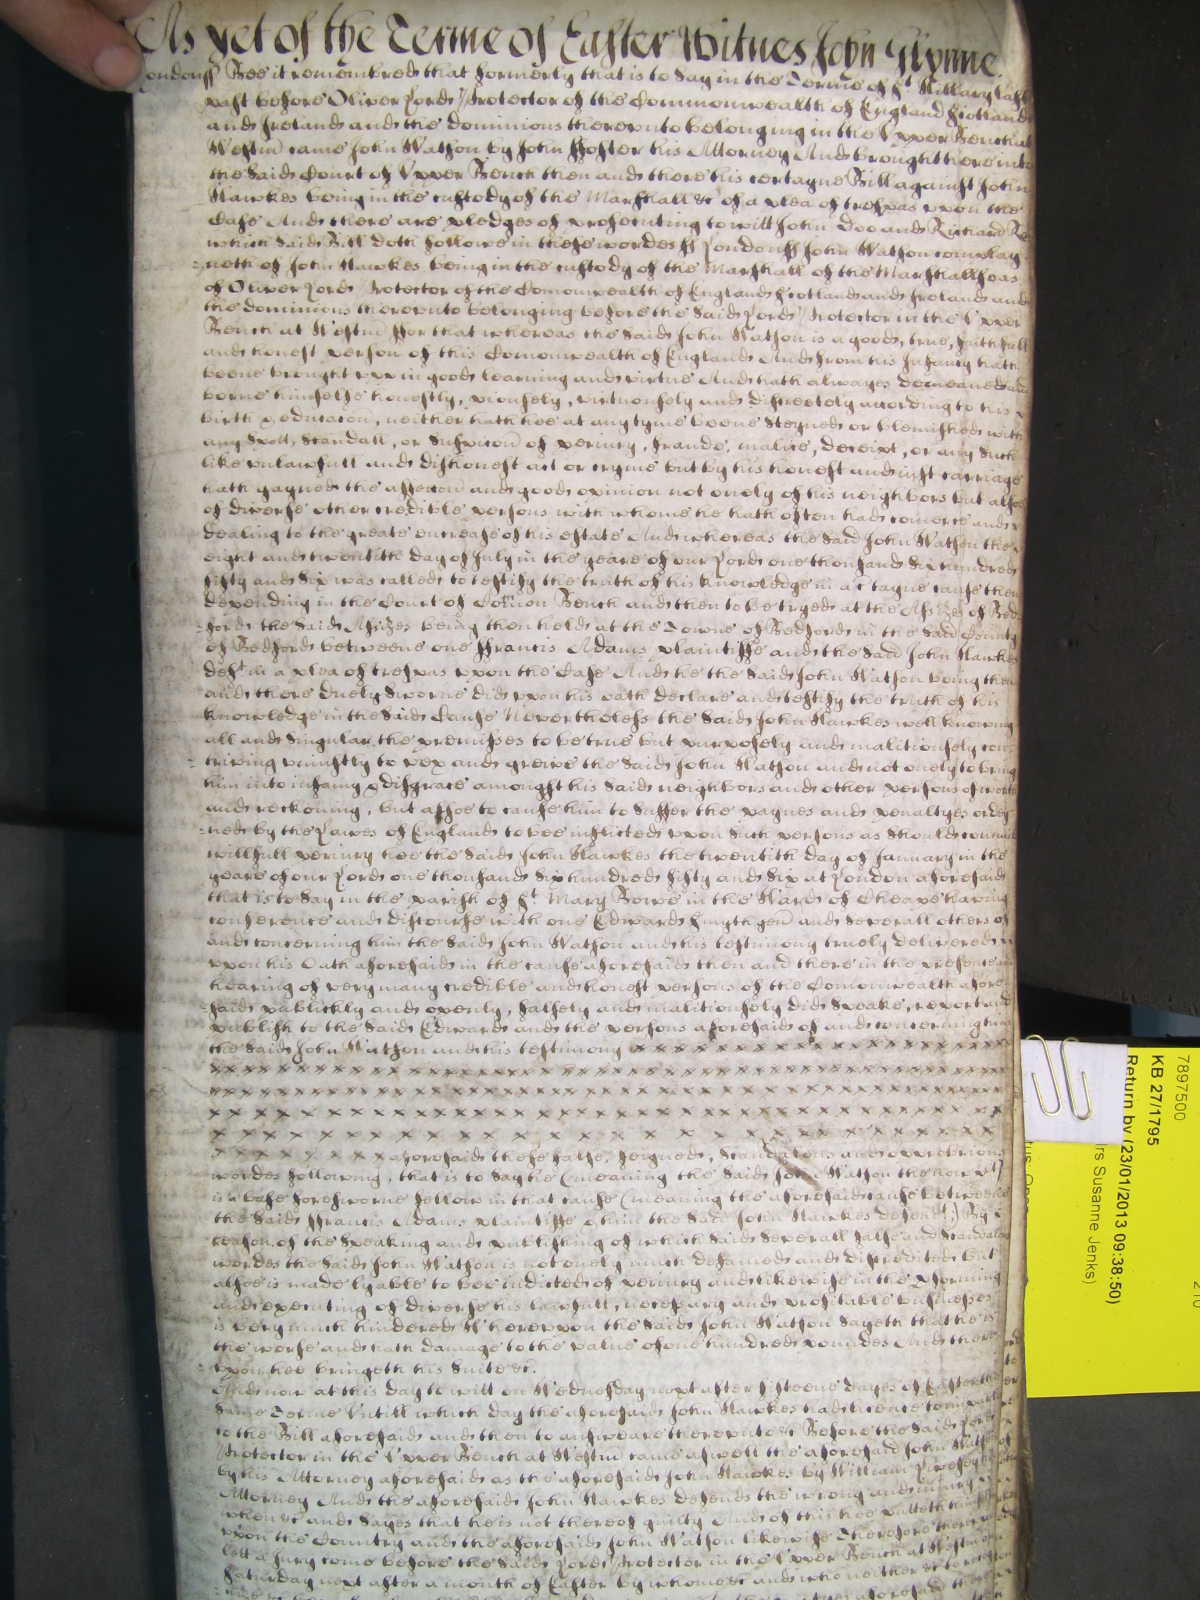 As yet of the Terme of Easter Witnes John Glynne
Londonss Bee it remembred that formerly that is to say in the Terme of St Hillary last
past before Oliver Lord Protector of the Commonwealth of England Scotland
and Ireland and the dominions thereunto belonging in the Upper Bench at
Westm̄ came John Watson by John Foster his Attorney And brought there into
the said Court of Upper Bench then and there his certayne Bill against John
Hawkes being in the custody of the Marshall &c of a plea of trespas upon the
Case And there are pledges of prosecuting to witt John Doo and Richard Ro
which said Bill doth followe in these wordes ss Londonss John Watson complay
=neth of John Hawkes being in the custody of the Marshall of the Marshallseas
of Oliver Lord Protector of the Comonwealth of England Scotland and Ireland and
the dominions thereunto belonging before the said Lord Protector in the Upper
Bench at Westm̄ ffor that whereas the said John Watson is a good, true, faithfull
and honest person of this Comonwealth of England And from his Infancy hath
beene brought upp in good learning and virtue And hath alwayes demeaned and
borne himselfe honestly, piously, virtuously and discreetely according to his
birth & educacon, neither hath hee at any tyme beene steyned or blemished with
any spott, scandall, or suspicon of periury, fraude, malice, deceipt, or any such
like unlawfull and dishonest act or cryme but by his honest and iust carriage
hath gayned the affeccon and good opinion not onely of his neighbors but alsoe
of diverse other credible persons with whome he hath often had comerce and
dealing to the greate encrease of his estate And whereas the said John Watson the
eight and twentith day of July in the yeare of our Lord one thousand six hundred
fifty and six was called to testify the truth of his knowledge in a c̄tayne cause then
depending in the Court of Comon Bench and then to be tryed at the Assizes of Bed
=ford the said Assizes being then held at the Towne of Bedford in the said County
of Bedford betweene one Francis Adams plaintiffe and the said John Hawkes
deft in a plea of trespas upon the Case And he the said John Watson being then
and there duely sworne did upon his oath declare and testify the truth of his
knowledge in the said Cause Nevertheless the said John Hawkes well knowing
all and singular the premisses to be true but purposely and malitiously con
=triving uniustly to vex and greive the said John Watson and not onely to bring
him into infamy & disgrace amongst his said neighbors and other persons of worth
and reckoning, but alsoe to cause him to suffer the paynes and penaltyes ordey
=ned by the Lawes of England to bee inflicted upon such persons as should comit
willfull periury hee the said John Hawkes the twentith day of January in the
yeare of our Lord one thousand six hundred fifty and six at London aforesaid
that is to say in the parish of St Mary Bowe in the Ward of Cheape having
conference and discourse with one Edward Smyth gen̄ and severall others of
and concerning him the said John Watson and his testimony truely delivered
upon his Oath aforesaid in the cause aforesaid then and there in the presence and
hearing of very many credible and honest persons of the Comonwealth afore
=said publickly and openly, falsely and malitiously did speake, report and
publish to the said Edward and the persons aforesaid of and concerning him
the said John Watson and his testimony x x x x x x x x x x x x x x x x x x x x
x x x x x x x x x x x x x x x x x x x x x x x x x x x x x x x x
x x x x x x x x x x x x x x x x x x x x x x x x x x x x x x x x
x x x x x x x x x x x x x x x x x x x x x x x x x x x x
x x x x x x x x x x x x x x x x x x x x x x x
x x x x x x x x aforesaid these false, feigned, scandalous and opprobrious
wordes following, that is to say he (meaning the said John Watson the now plt)
is a base foresworne fellow in that cause (meaning the aforesaid cause betweene
the said Francis Adams plaintiffe & him the said John Hawkes defendt.) By
reason of the speaking and publishing of which said severall false and scandalous
wordes the said John Watson is not onely much defamed and discredited but
alsoe is made lyable to bee indicted of periury and likewise in the pforming
and executing of diverse his lawfull, necessary and profitable businesses
is very much hindered Whereupon the said John Watson sayeth that he is
the worse and hath damage to the value of one hundred poundes And there
upon hee bringeth his suite &c.
And now at this day to witt on Wednesday next after fifteene dayes of Easter the
same Terme Untill which day the aforesaid John Hawkes had licence to imparle
to the Bill aforesaid and then to answeare thereunto &c Before the said Lord
Protector in the Upper Bench at Westm̄ came aswell the aforesaid John Watson
by his Attorney aforesaid as the aforesaid John Hawkes by William Livesey his
Attorney And the aforesaid John Hawkes defends the wrong and iniury
when &c and sayes that he is not thereof guilty And of this hee putteth himselfe
upon the Country and the aforesaid John Watson likewise Therefore
lett a Jury come before the said Lord Protector in the Upper Bench at Westm̄ on
Saturday next after a month of Easter by whome &c and who neither &c to
aforesaid
7897500
KB 27/1795
Return by (23/01/2013 09:38:50)
rs Susanne Jenks)